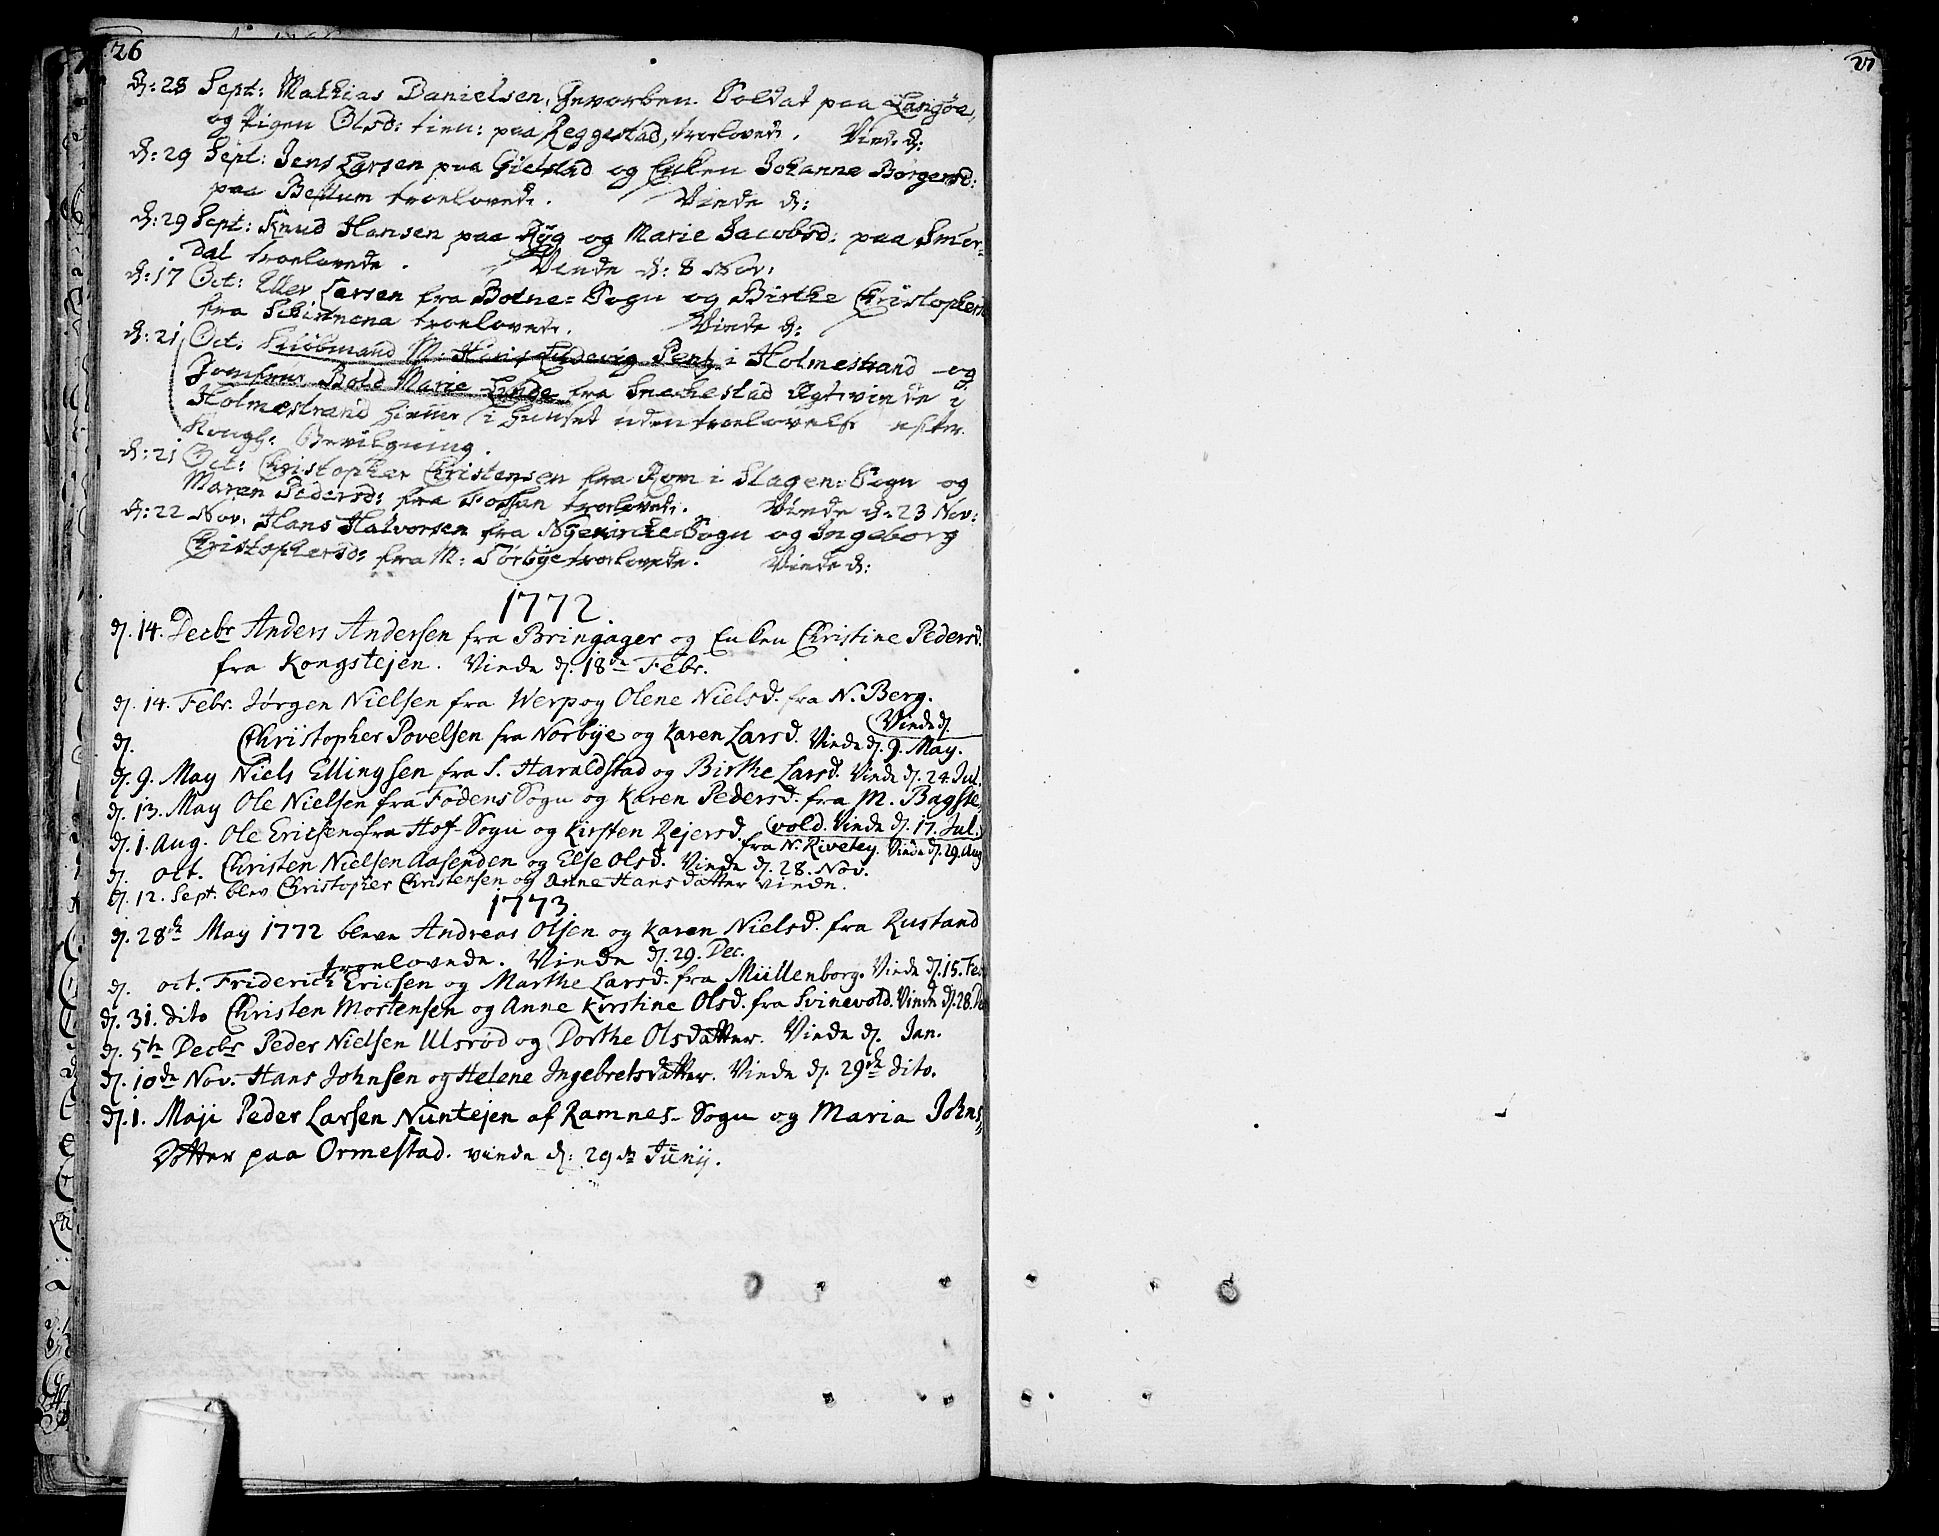 26
d: 28 Sept: Mathias Danielsen, Gevorben Soldat paa Langøe,
og Pigen Olsd: tien: paa Reggestad, troelovede. Viede d:
d: 29 Sept: Jens Larsen paa Gielstad og Enken Johanne Borgersd:
paa Bettum troelovede. Viede d:
d: 29 Sept: Knud Hansen paa Ryg og Marie Jacobsd: paa Smør-
dal troelovede. Viede d: 8 Nov:
d: 17 Oct: Eller Larsen fra Botne-Sogn og Birthe Christophers
fra troelovede. Viede d:
d: 21 Oct. Kiøbmand M: Hans Ludevig Pentz i Holmestrand og
Jomfrue Bold Marie Lunde fra Snekestad Ægtviede i
Holmestrand hiemme i Huuset uden troelovelse efter
Kongl: Bevilgning.
d: 21 Oct: Christopher Christensen fra Rom i Slagen-Sogn og
Maren Pedersd: fra Fossan troelovede. Viede d: 23 Nov:
d: 22 Nov. Hans Halvorsen fra Nyekirche Sogn og Ingeborg
Christophersd: fra M: Sørbye troelovede. Viede d:
1772.
d. 14. Decbr Anders Andersen fra Bringager og Enken Christine Pedersd.
fra Kongstejen. Viede d. 18de Febr.
d. 14. Febr. Jørgen Nielsen fra Werp og Olene Nielsd. fra N. Berg.
Viede d.
d. Christopher Povelsen fra Norbye og Karen Larsd. Viede d. 9. May.
d. 9. May Niels Ellingsen fra S. Haraldstad og Birthe Larsd. Viede d. 24. Jul.
d. 13. May Ole Nielsen fra Fodens Sogn og Karen Pedersd. fra M. Bagste-
vold. Viede d. 17. Jul.
d. 1. Aug. Ole Ericsen fra Hof-Sogn og Kirsten Rejersd.
fra N. Rivetey. Viede d. 29. Aug
d. oct. Christen Nielsen Aasenden og Else Olsd. Viede d. 28. Nov.
d. 12. Sept. blev Christopher Christensen og Anne Hansdatter viede.
1773.
d. 28de May 1772 bleve Andreas Olsen og Karen Nielsd. fra Rustand
troelovede. Viede d. 29. Dec.
d. oct. Friderich Ericsen og Marthe Larsd. fra Müllenborg. Viede d. 15. Feb
d. 31. dito Christen Mortensen og Anne Kirstine Olsd. fra Svinevold. Viede d. 28. De
d. 5te Decbr Peder Nielsen Ulsrød og Dorthe Olsdatter. Viede d. Jan.
d. 10de Nov. Hans Johnsen og Helene Ingebretsdatter. Viede d. 29de dito.
d. 1. Maji Peder Larsen Nuntejen af Ramnes-Sogn og Maria Johns-
Datter paa Ormestad. viede d: 29de Junij.
27